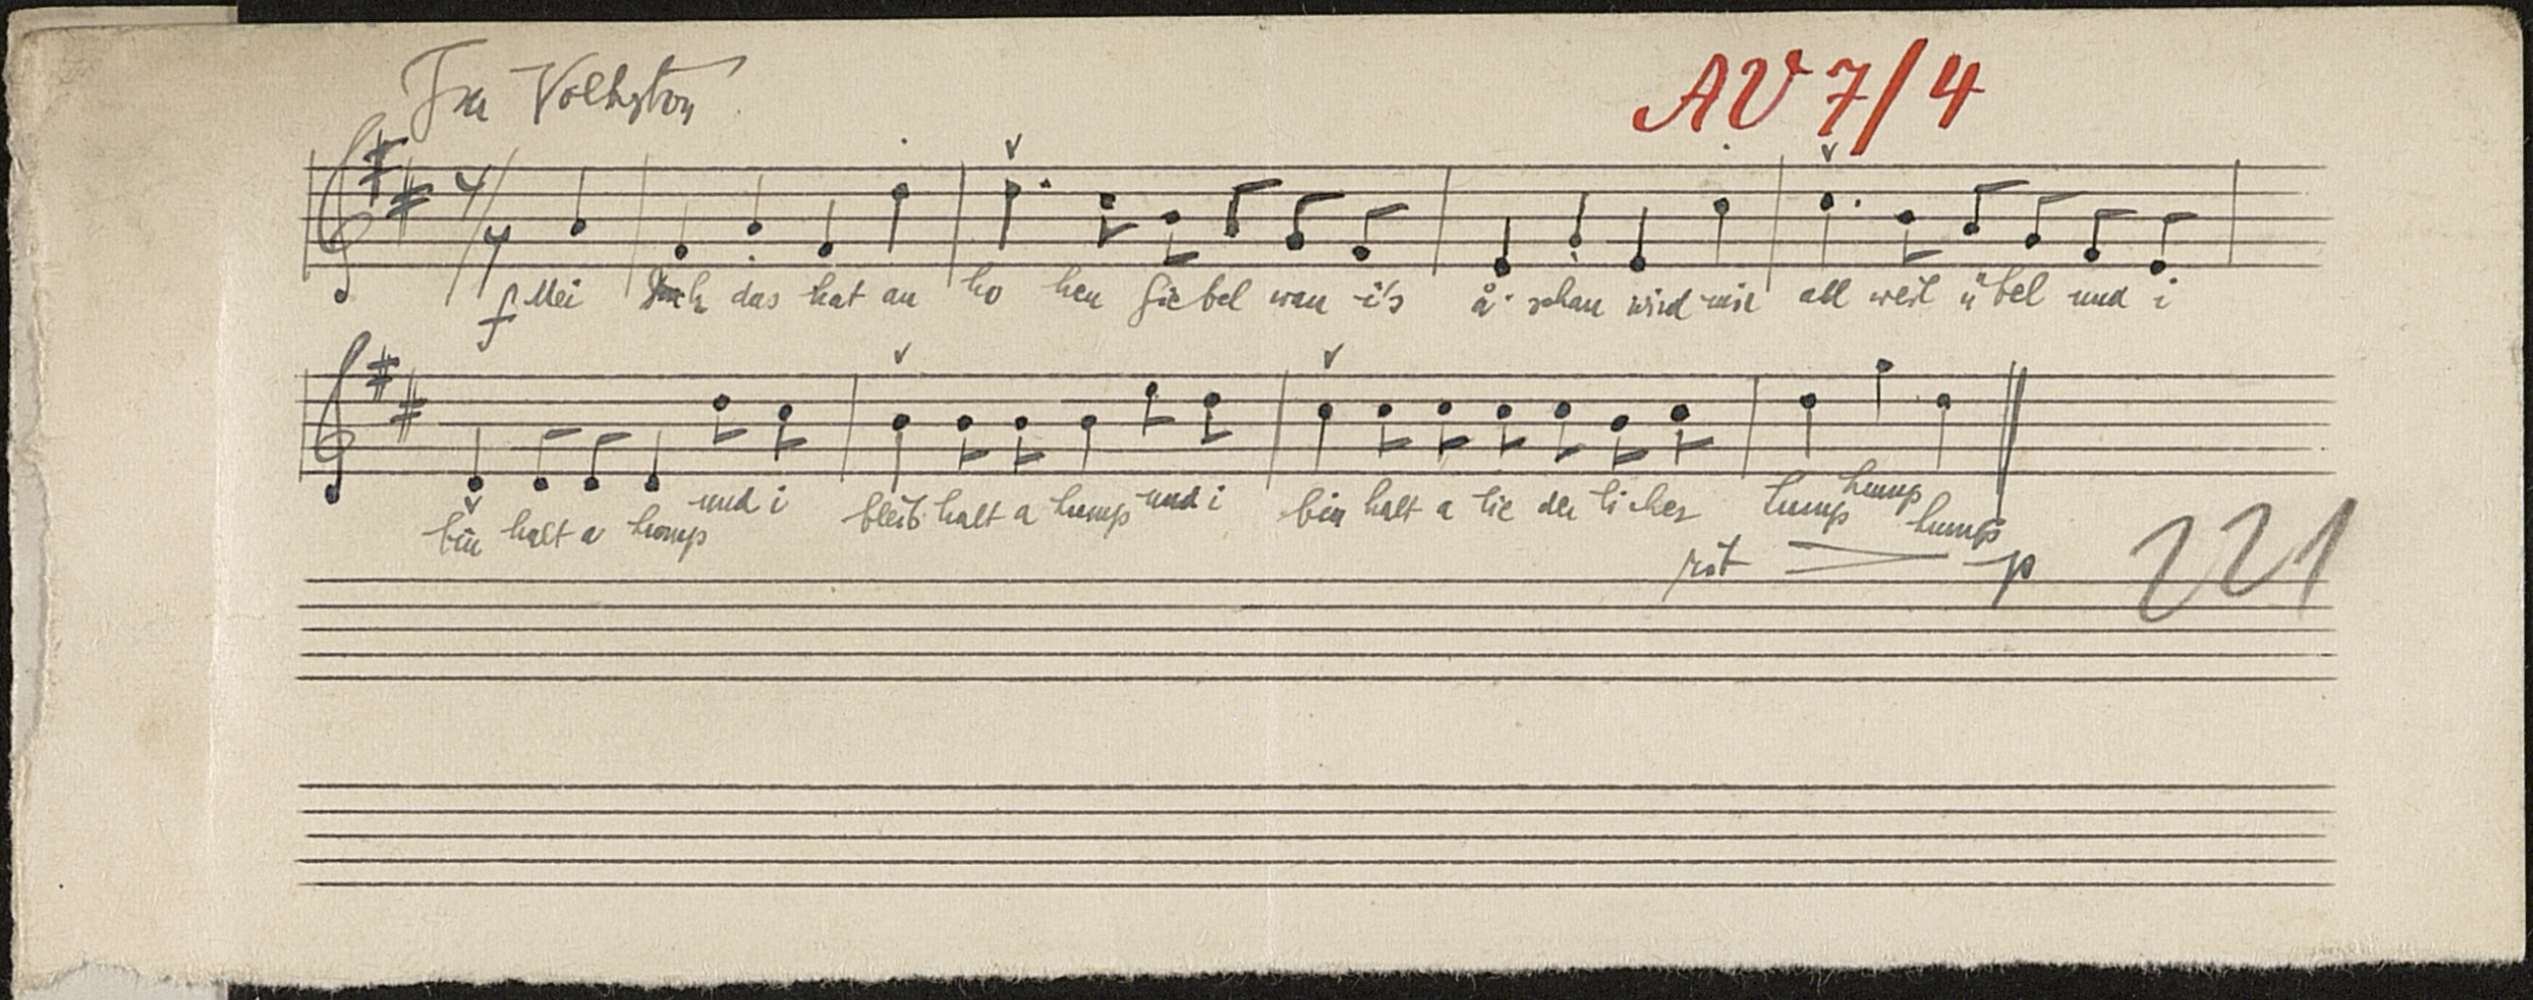 Im Volkston
AV 7/4
4/4
f Mei Dach das hat an ho hen Gie bel wan i's å schau wird mir all weil ü bel und i
bin halt a lump und i bleib halt a lump und i bin halt a lie der li cher lump lump lump
rit p
221